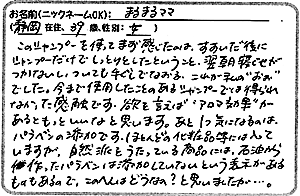 お名前(ニックネームOK): まるまるママ
(静岡 在住、39 歳、性別: 女 )
このシャンプーを使ってまず感じたのは、すすいだ後に
シャンプーだけでしっとりとしたということ。翌朝寝ぐせが
つかない。ついても手ぐしでなおる。これが私の"おお"
でした。今まで使用したことのあるシャンプーでは得られ
なかった感触です。欲を言えば"アロマ効果"が
あるともっといいなと思います。あと1つ気になるのは、
パラベンの添加です。ほとんどの化粧品等には入って
いますが、自然派とうたっている商品には、石油から
作った、パラベンは添加していないという表示がある
ものもあるので、このへんはどうなの?と思いましたが…。